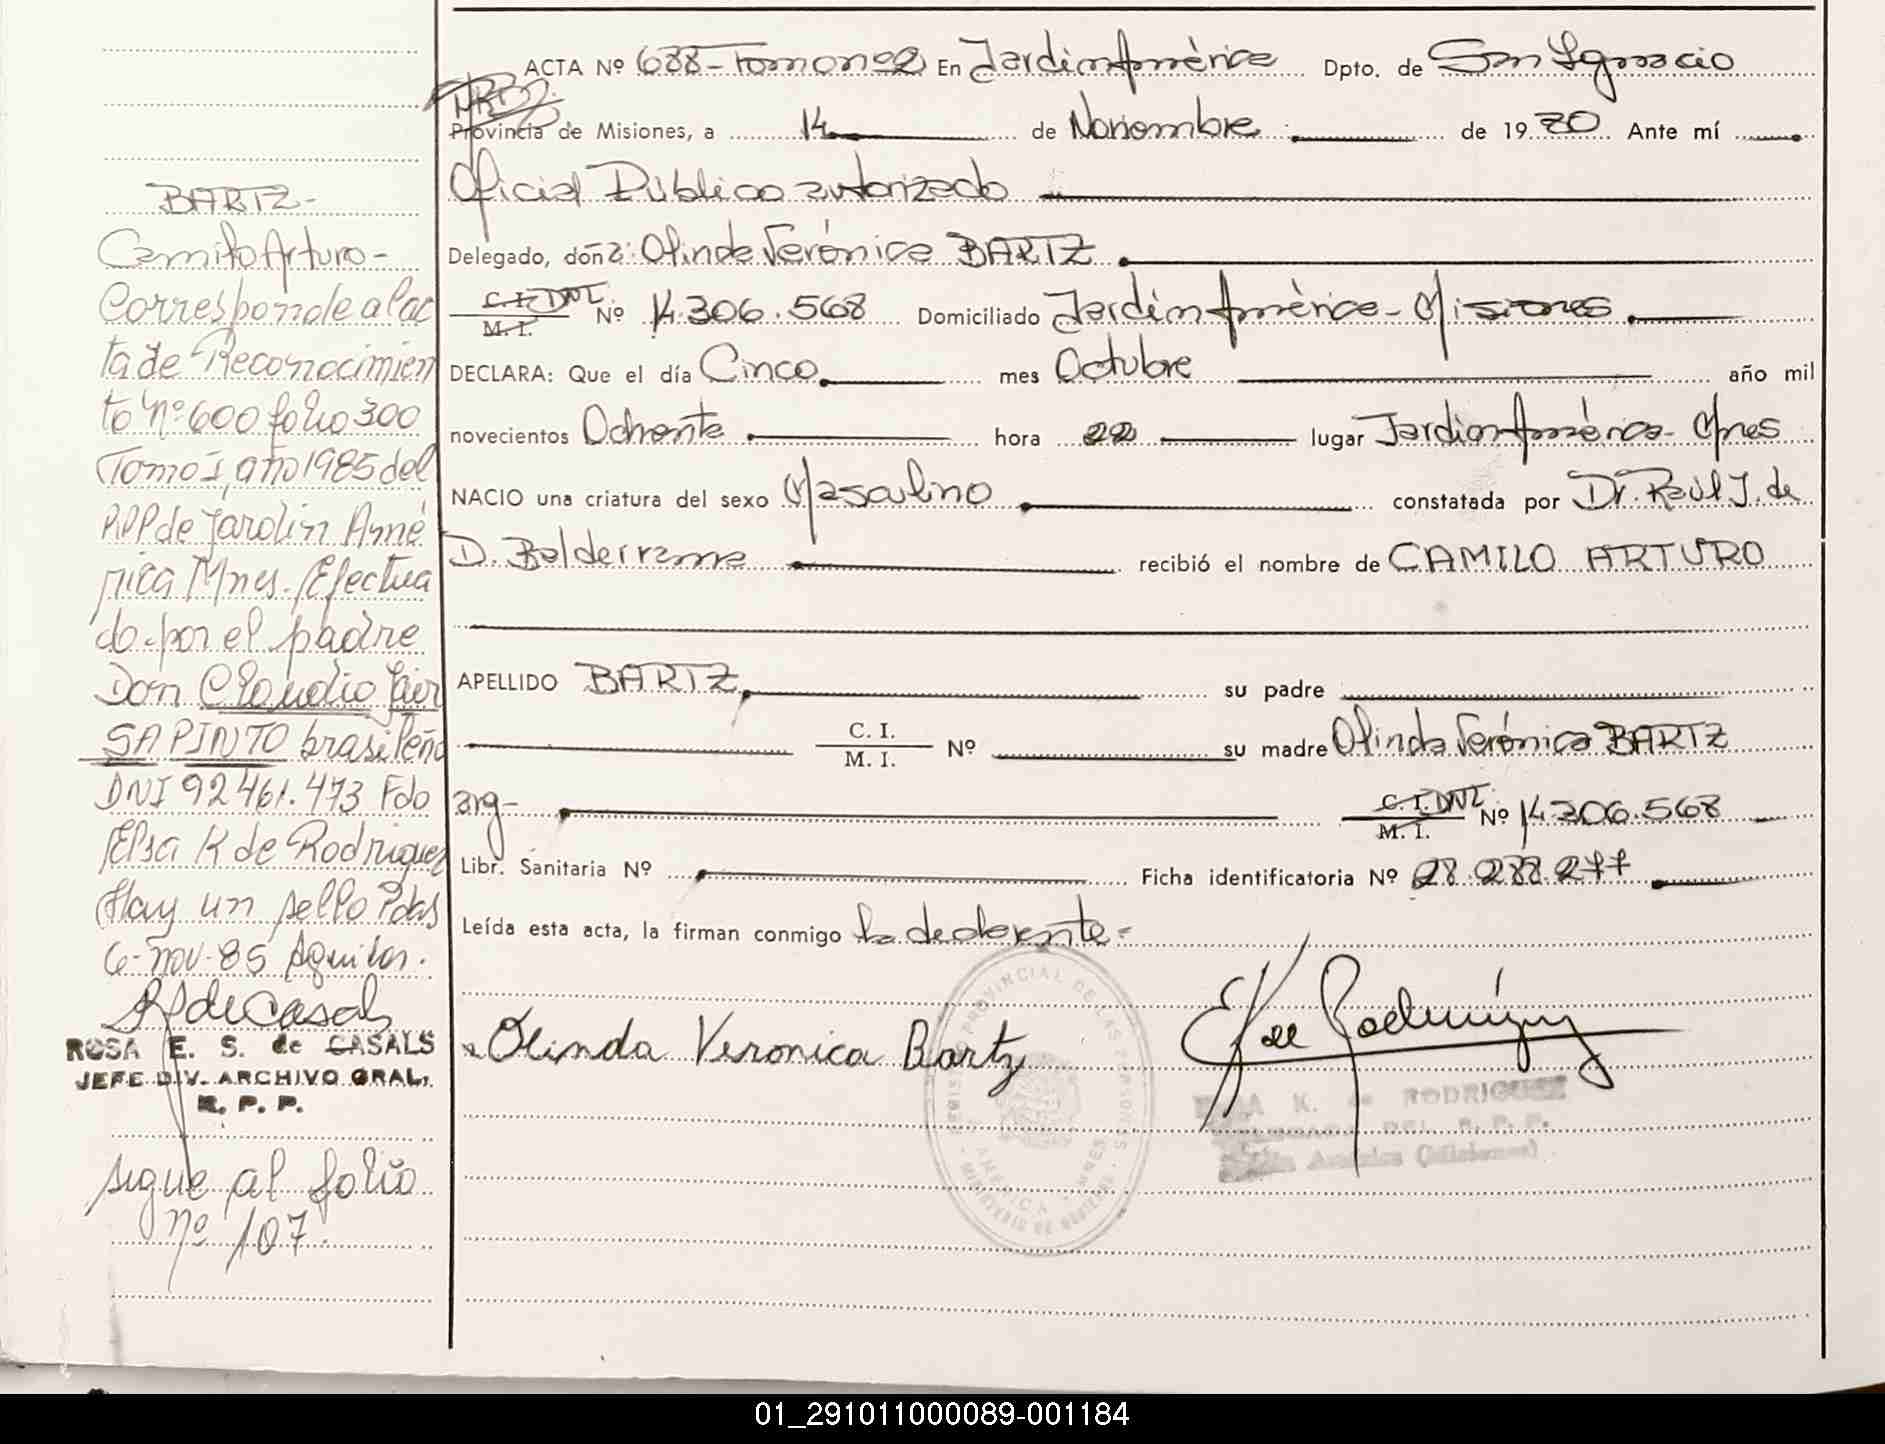 ACTA Nº 688-Tomo nº2 En Jardín América Dpto. de San Ignacio
Provincia de Misiones, a 14 de Noviembre de 1980 Ante mí
Oficial Público autorizado
Delegado, doña: Olinda Verónica BARTZ
C.I. DNI. M.I. Nº 14.306.568 Domiciliado Jardín América - Misiones
DECLARA: Que el día Cinco mes Octubre año mil
novecientos Ochenta hora 22 lugar Jardín América - Mnes
NACIO una criatura del sexo Masculino constatada por Dr. Raúl J. de
D. Balderrama recibió el nombre de CAMILO ARTURO
APELLIDO BARTZ su padre
C. I. M. I. Nº su madre Olinda Verónica BARTZ
arg-
C.I. DNI. M.I. Nº 14.306.568
Libr. Sanitaria Nº Ficha identificatoria Nº 28.288.277
Leída esta acta, la firman conmigo la declarante-
Olinda Veronica Bartz
E K de Rodríguez
K. de RODRIGUEZ
DEL R. P. P.
América (Misiones)
REGISTRO PROVINCIAL DE LAS PERSONAS
MINISTERIO DE GOBIERNO
AMERICA MNES
BARTZ-
Camilo Arturo-
Corresponde al ac
ta de Reconocimien
to Nº 600 folio 300
Tomo I, año 1985 del
RPP de Jardín Amé
rica Mnes. Efectua
do por el padre
Don Claudio Jair
SAPINTO brasileño
DNI 92461.473 Fdo
Elsa K de Rodriguez
Hay un sello Pdas
6-nov-85
RS de Casals
ROSA E. S. de CASALS
JEFE DIV. ARCHIVO GRAL.
R. P. P.
sigue al folio
nº 107.
01_291011000089-001184